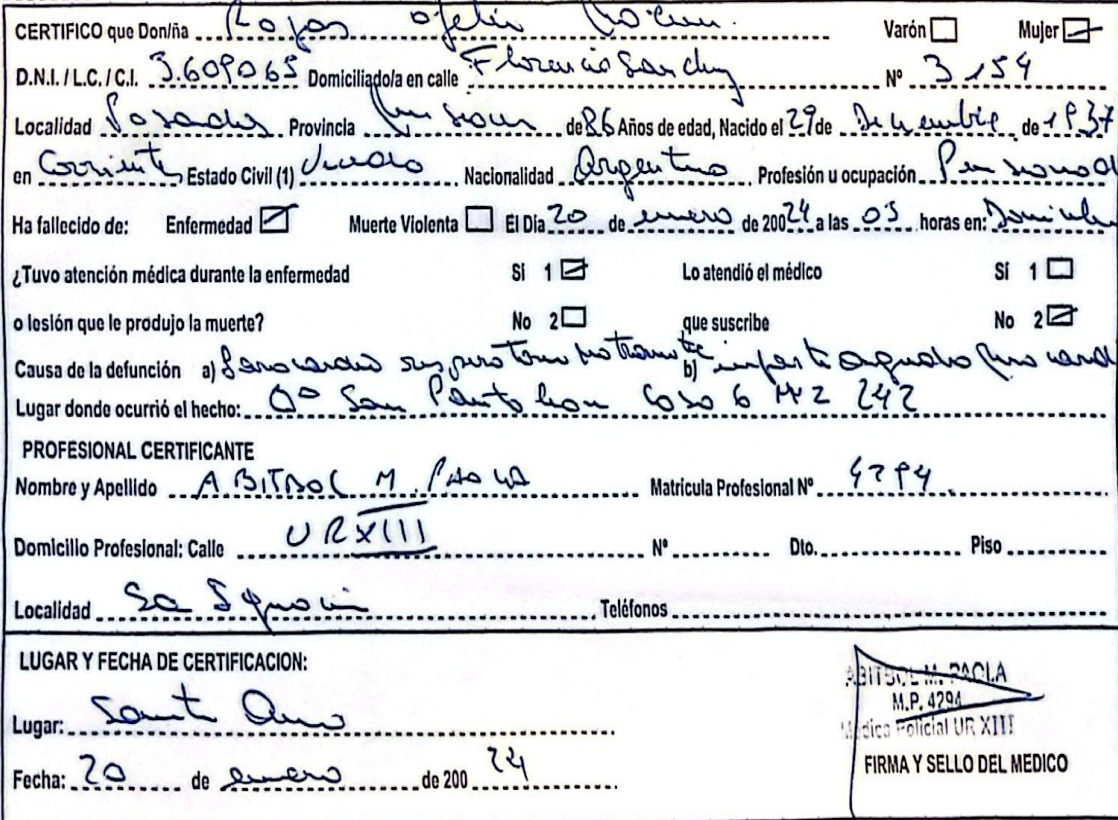 CERTIFICO que Don/ña Rojas Ofelia Varón Mujer
D.N.I. / L.C. / C.I. 3.609065 Domiciliado/a en calle Florencio Sanchez Nº 3154
Localidad Posadas Provincia Misiones de 86 Años de edad, Nacido el 29 de Diciembre de 1937
en Corrientes Estado Civil (1) Nacionalidad Argentina Profesión u ocupación Pensionad
Ha fallecido de: Enfermedad Muerte Violenta El Día 20 de enero de 200 24 a las 03 horas en: Domicilio
¿Tuvo atención médica durante la enfermedad Si 1 Lo atendió el médico Sí 1
o lesión que le produjo la muerte? No 2 que suscribe No 2
Causa de la defunción a) Paro cardio respiratorio no traumatic b) infarto agudo miocardi
Lugar donde ocurrió el hecho: Bº San Pantaleon Casa 6 Mz 242
PROFESIONAL CERTIFICANTE
Nombre y Apellido ABITBOL M. PAOLA Matricula Profesional Nº 4294
Domicilio Profesional: Calle UR XIII Nº Dto. Piso
Localidad San Ignacio Teléfonos
LUGAR Y FECHA DE CERTIFICACION:
Lugar: Santa Ana
Fecha: 20 de enero de 200 24
ABITBOL M. PAOLA
M.P. 4294
Médico Policial UR XIII
FIRMA Y SELLO DEL MEDICO